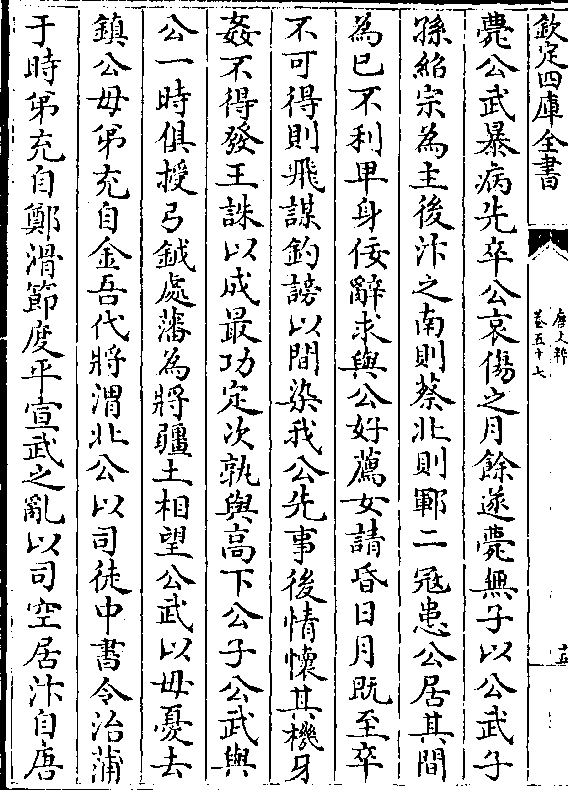 欽定四庫全書
唐文粹
卷五十七
薨公武暴病先卒公哀傷之月餘遂薨無子以公武子
孫紹宗為主後汴之南則蔡北則鄆二冦患公居其間
為已不利卑身佞辭求與公好薦女請昏日月既至卒
不可得則飛謀釣謗以間染我公先事後情懷其機牙
姦不得發王誅以成最功定次孰與高下公子公武與
公一時俱授弓鉞處藩為將疆土相望公武以毋憂去
鎮公毋弟充自金吾代將渭北公以司徒中書令治蒲
于時弟充自鄭滑節度平宣武之亂以司空居汴自唐